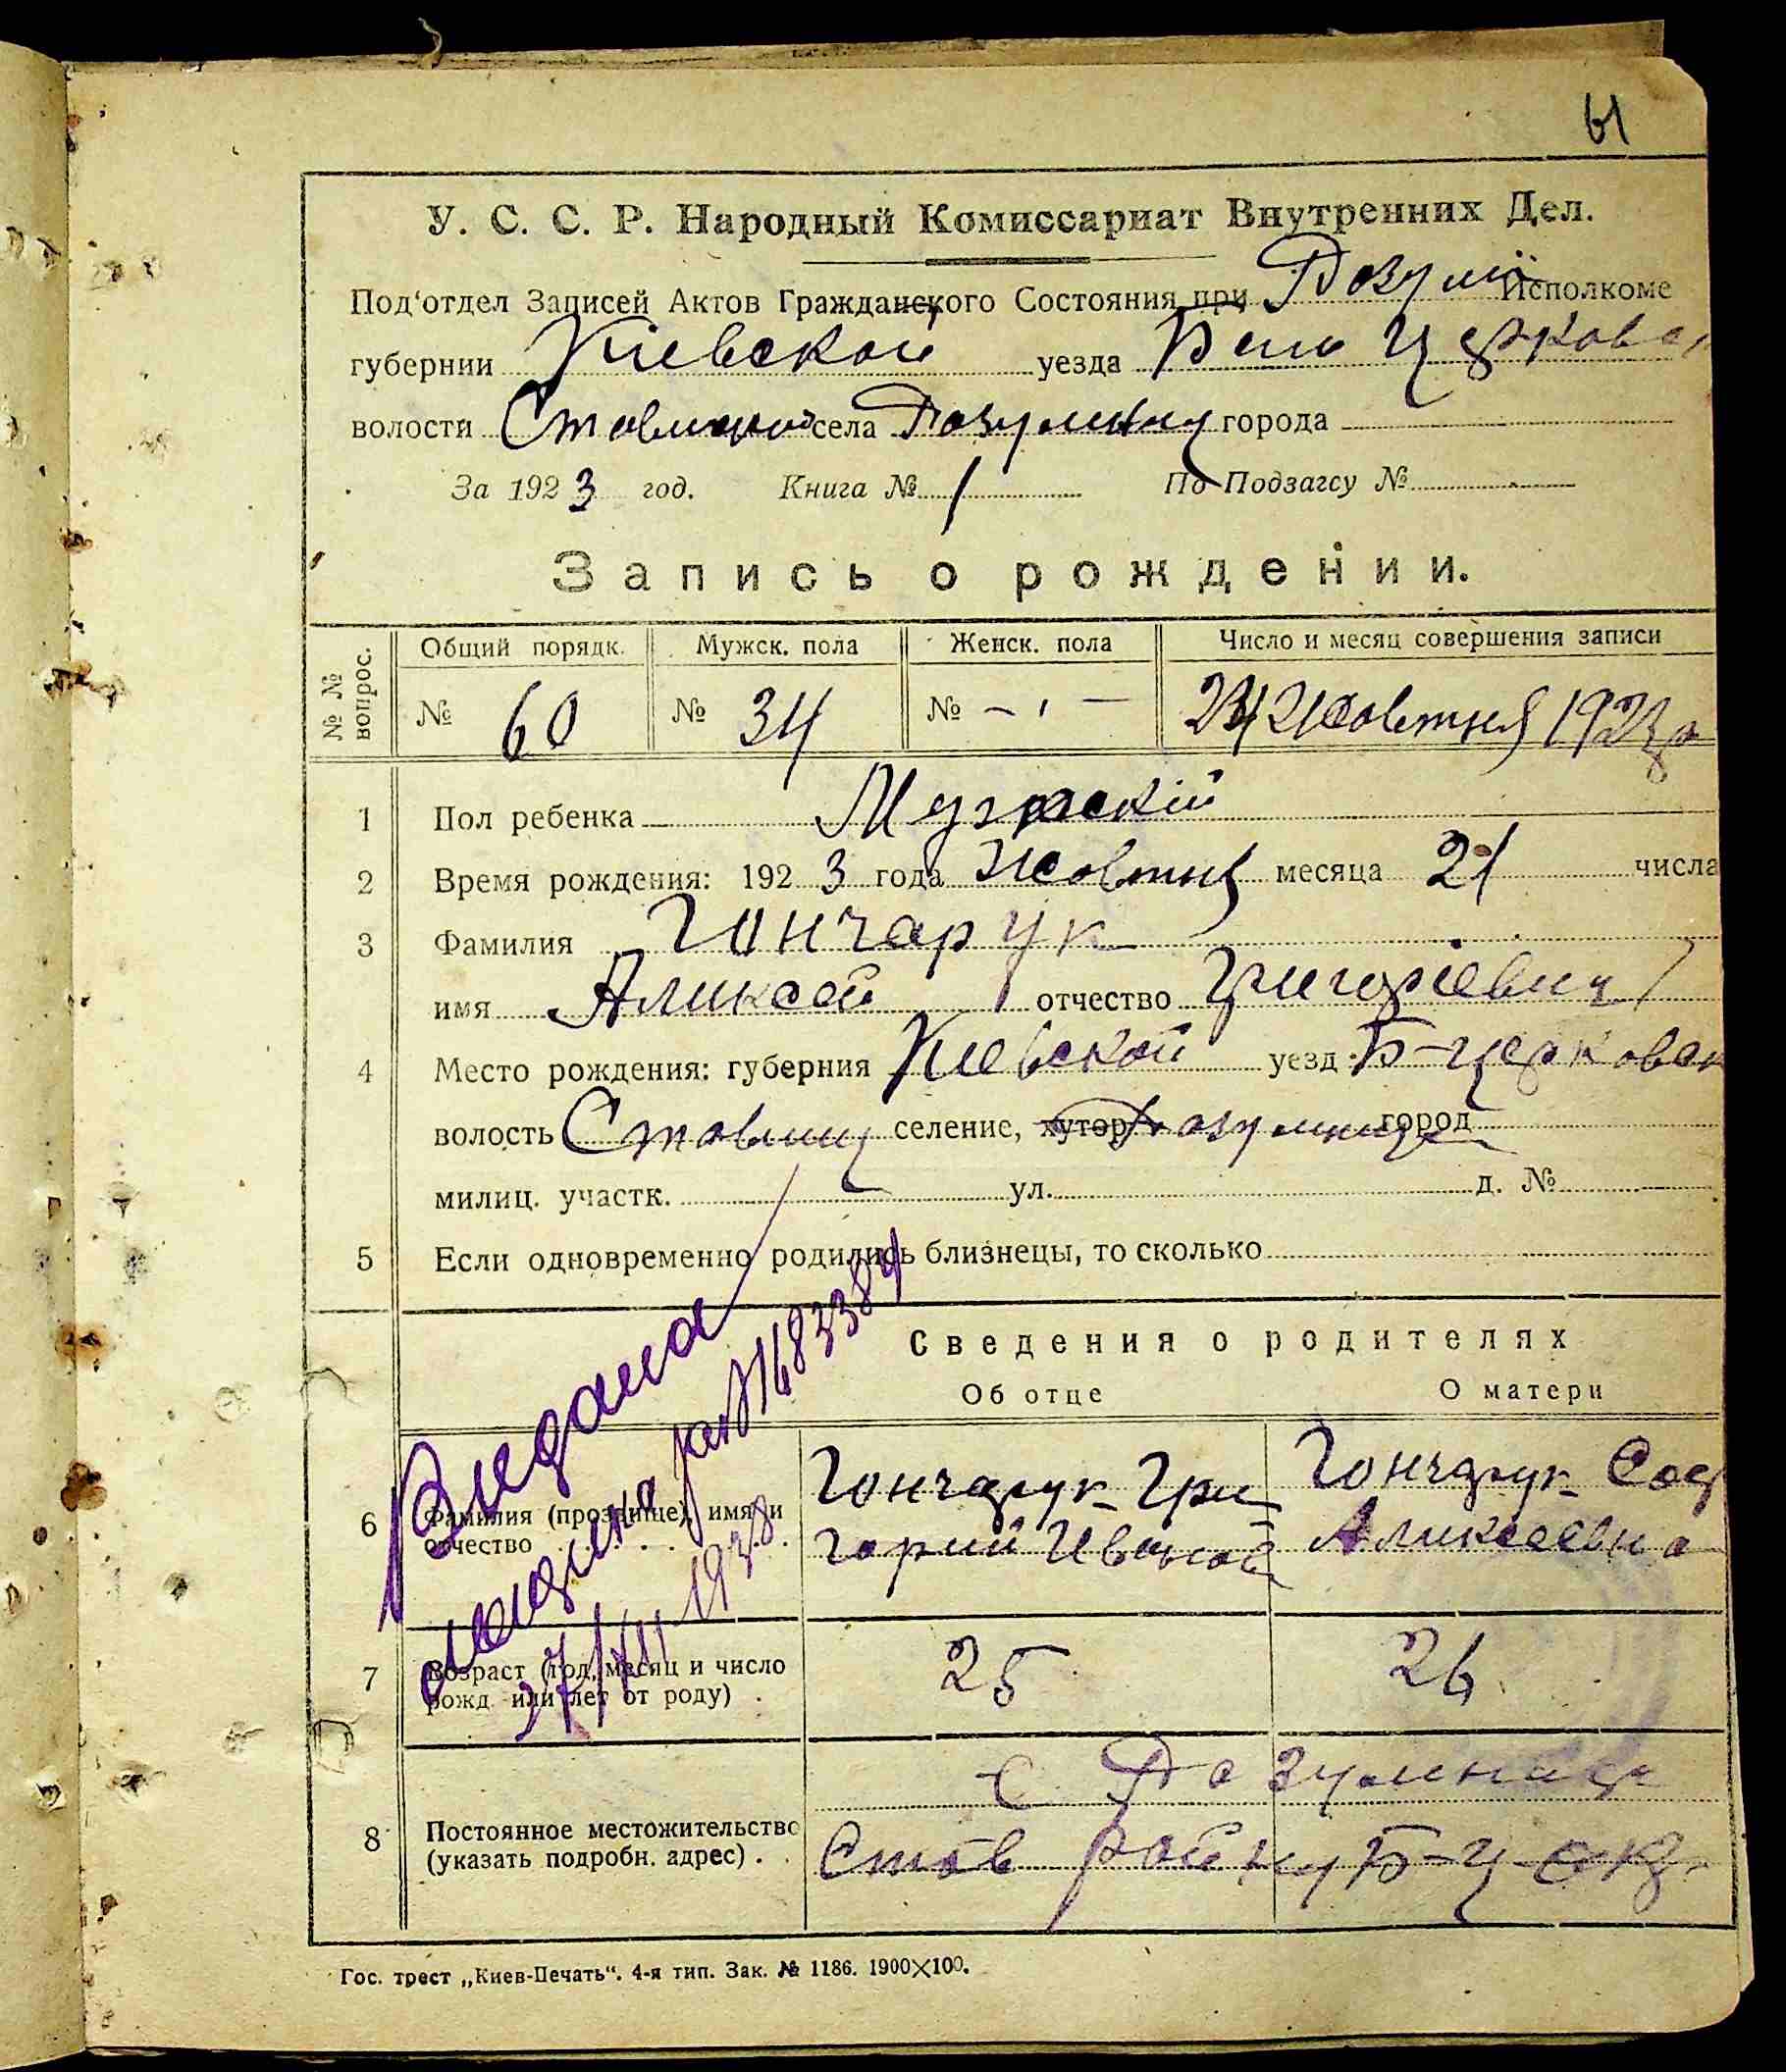 61
У. С. С. Р. Народный Комиссариат Внутренних Дел.
Под'отдел Записей Актов Гражданского Состояния при Розум Исполкоме
губернии Кіевской уезда Бело Церковс
волости села города
За 1923 год. Книга № 1 По Подзагсу №
Запись о рождении.
№ № вопрос. Общий порядк. Мужск. пола Женск. пола Число и месяц совершения записи
№ 60 № 34 № - ' - 24 Жовтня 1923 р
1 Пол ребенка Мужескій
2 Время рождения: 1923 года Жовтня месяца 21 числа
3 Фамилия Гончарук
имя Аликсей отчество Григоріевич
4 Место рождения: губерния Киевской уезд Б-Церковск
волость Ставищ селение, хутор Розумница город
милиц. участк. ул. д. №
5 Если одновременно родились близнецы, то сколько
Сведения о родителях
Об отце О матери
6 Фамилия (прозвище), имя и отчество
Гончарук Гри
горий Иванов
Гончарук Соф
Аликсеевна
7 Возраст (год, месяц и число рожд. или лет от роду) 25 26
8 Постоянное местожительство (указать подробн. адрес)
с Розумница
Став району Б-Ц окр.
Видана
1683384
1938
Гос. трест „Киев-Печать“. 4-я тип. Зак. № 1186. 1900×100.